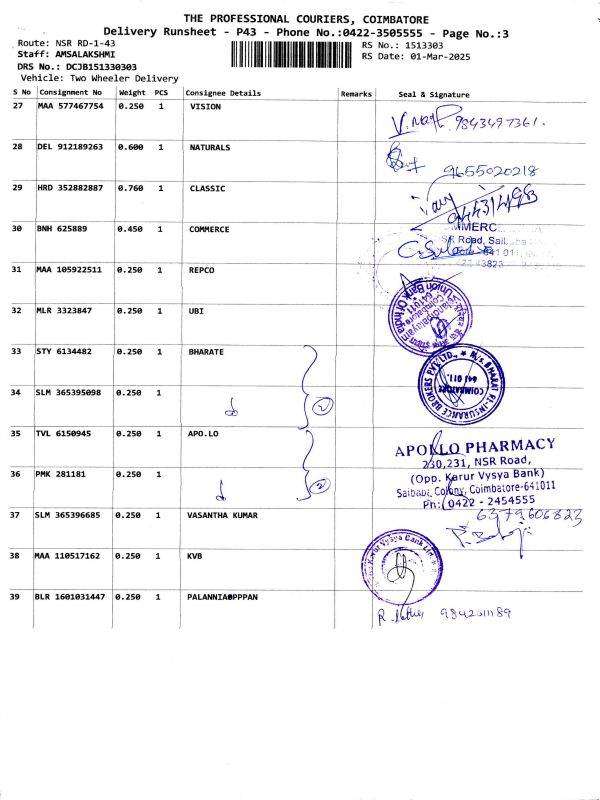 THE PROFESSIONAL COURIERS, COIMBATORE
Delivery Runsheet - P43 - Phone No.:0422-3505555 - Page No.:3
Route: NSR RD-1-43
RS No.: 1513303
Staff: AMSALAKSHMI
RS Date: 01-Mar-2025
DRS No.: DCJB151330303
Vehicle: Two Wheeler Delivery
S No Consignment No Weight PCS Consignee Details Remarks Seal & Signature
27 MAA 577467754 0.250 1 VISION
9843497361.
28 DEL 912189263 0.600 1 NATURALS
9655020218
29 HRD 352882887 0.760 1 CLASSIC
30 BNH 625889 0.450 1 COMMERCE
31 MAA 105922511 0.250 1 REPCO
32 MLR 3323847 0.250 1 UBI
Union Bank Of India
Coimbatore
641011
33 STY 6134482 0.250 1 BHARATE
M/s. BHARAT RE-INSURANCE BROKERS PVT. LTD.,
COIMBATORE
641 011.
34 SLM 365395098 0.250 1
2
35 TVL 6150945 0.250 1 APO.LO
APOLLO PHARMACY
230,231, NSR Road,
(Opp. Karur Vysya Bank)
Saibaba Colony, Coimbatore-641011
Ph: 0422 - 2454555
36 PMK 281181 0.250 1
2
37 SLM 365396685 0.250 1 VASANTHA KUMAR
6379606823
38 MAA 110517162 0.250 1 KVB
Karur Vysya Bank Ltd
39 BLR 1601031447 0.250 1 PALANNIAOPPPAN
9842011189